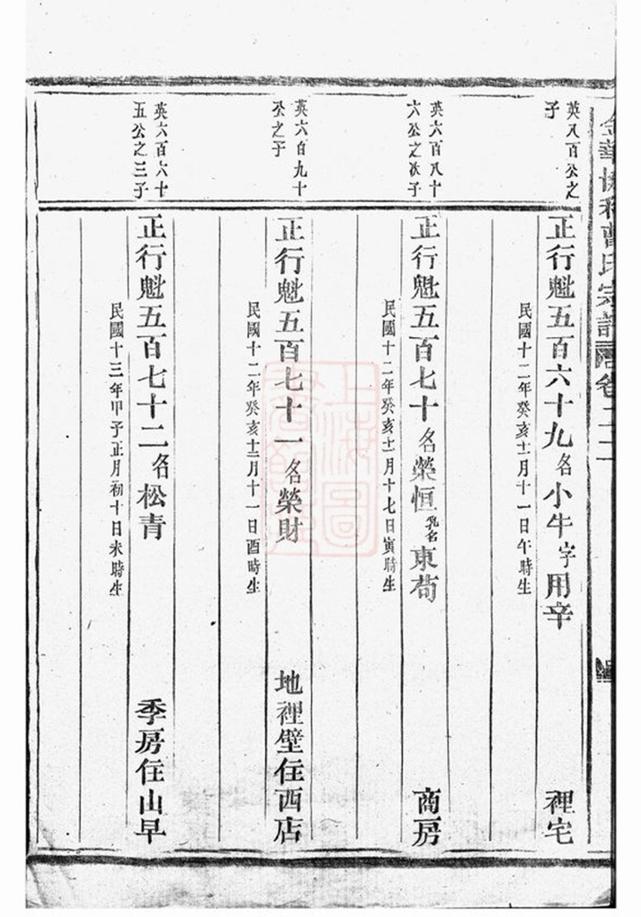 金華
曹氏宗譜
卷
英八百公之
子
正行魁五百六十九名小牛字用辛 裡宅
民國十二年癸亥十二月十一日午時生
英六百八十
六公之次子
正行魁五百七十名榮恒乳名東苟 商房
民國十二年癸亥十二月十七日寅時生
英六百九十
公之子
正行魁五百七十一名榮財 地裡壁住西店
民國十二年癸亥十二月十一日酉時生
英六百六十
五公之三子
正行魁五百七十二名松青 季房住山早
民國十三年甲子正月初十日未時生
上海圖
書館藏